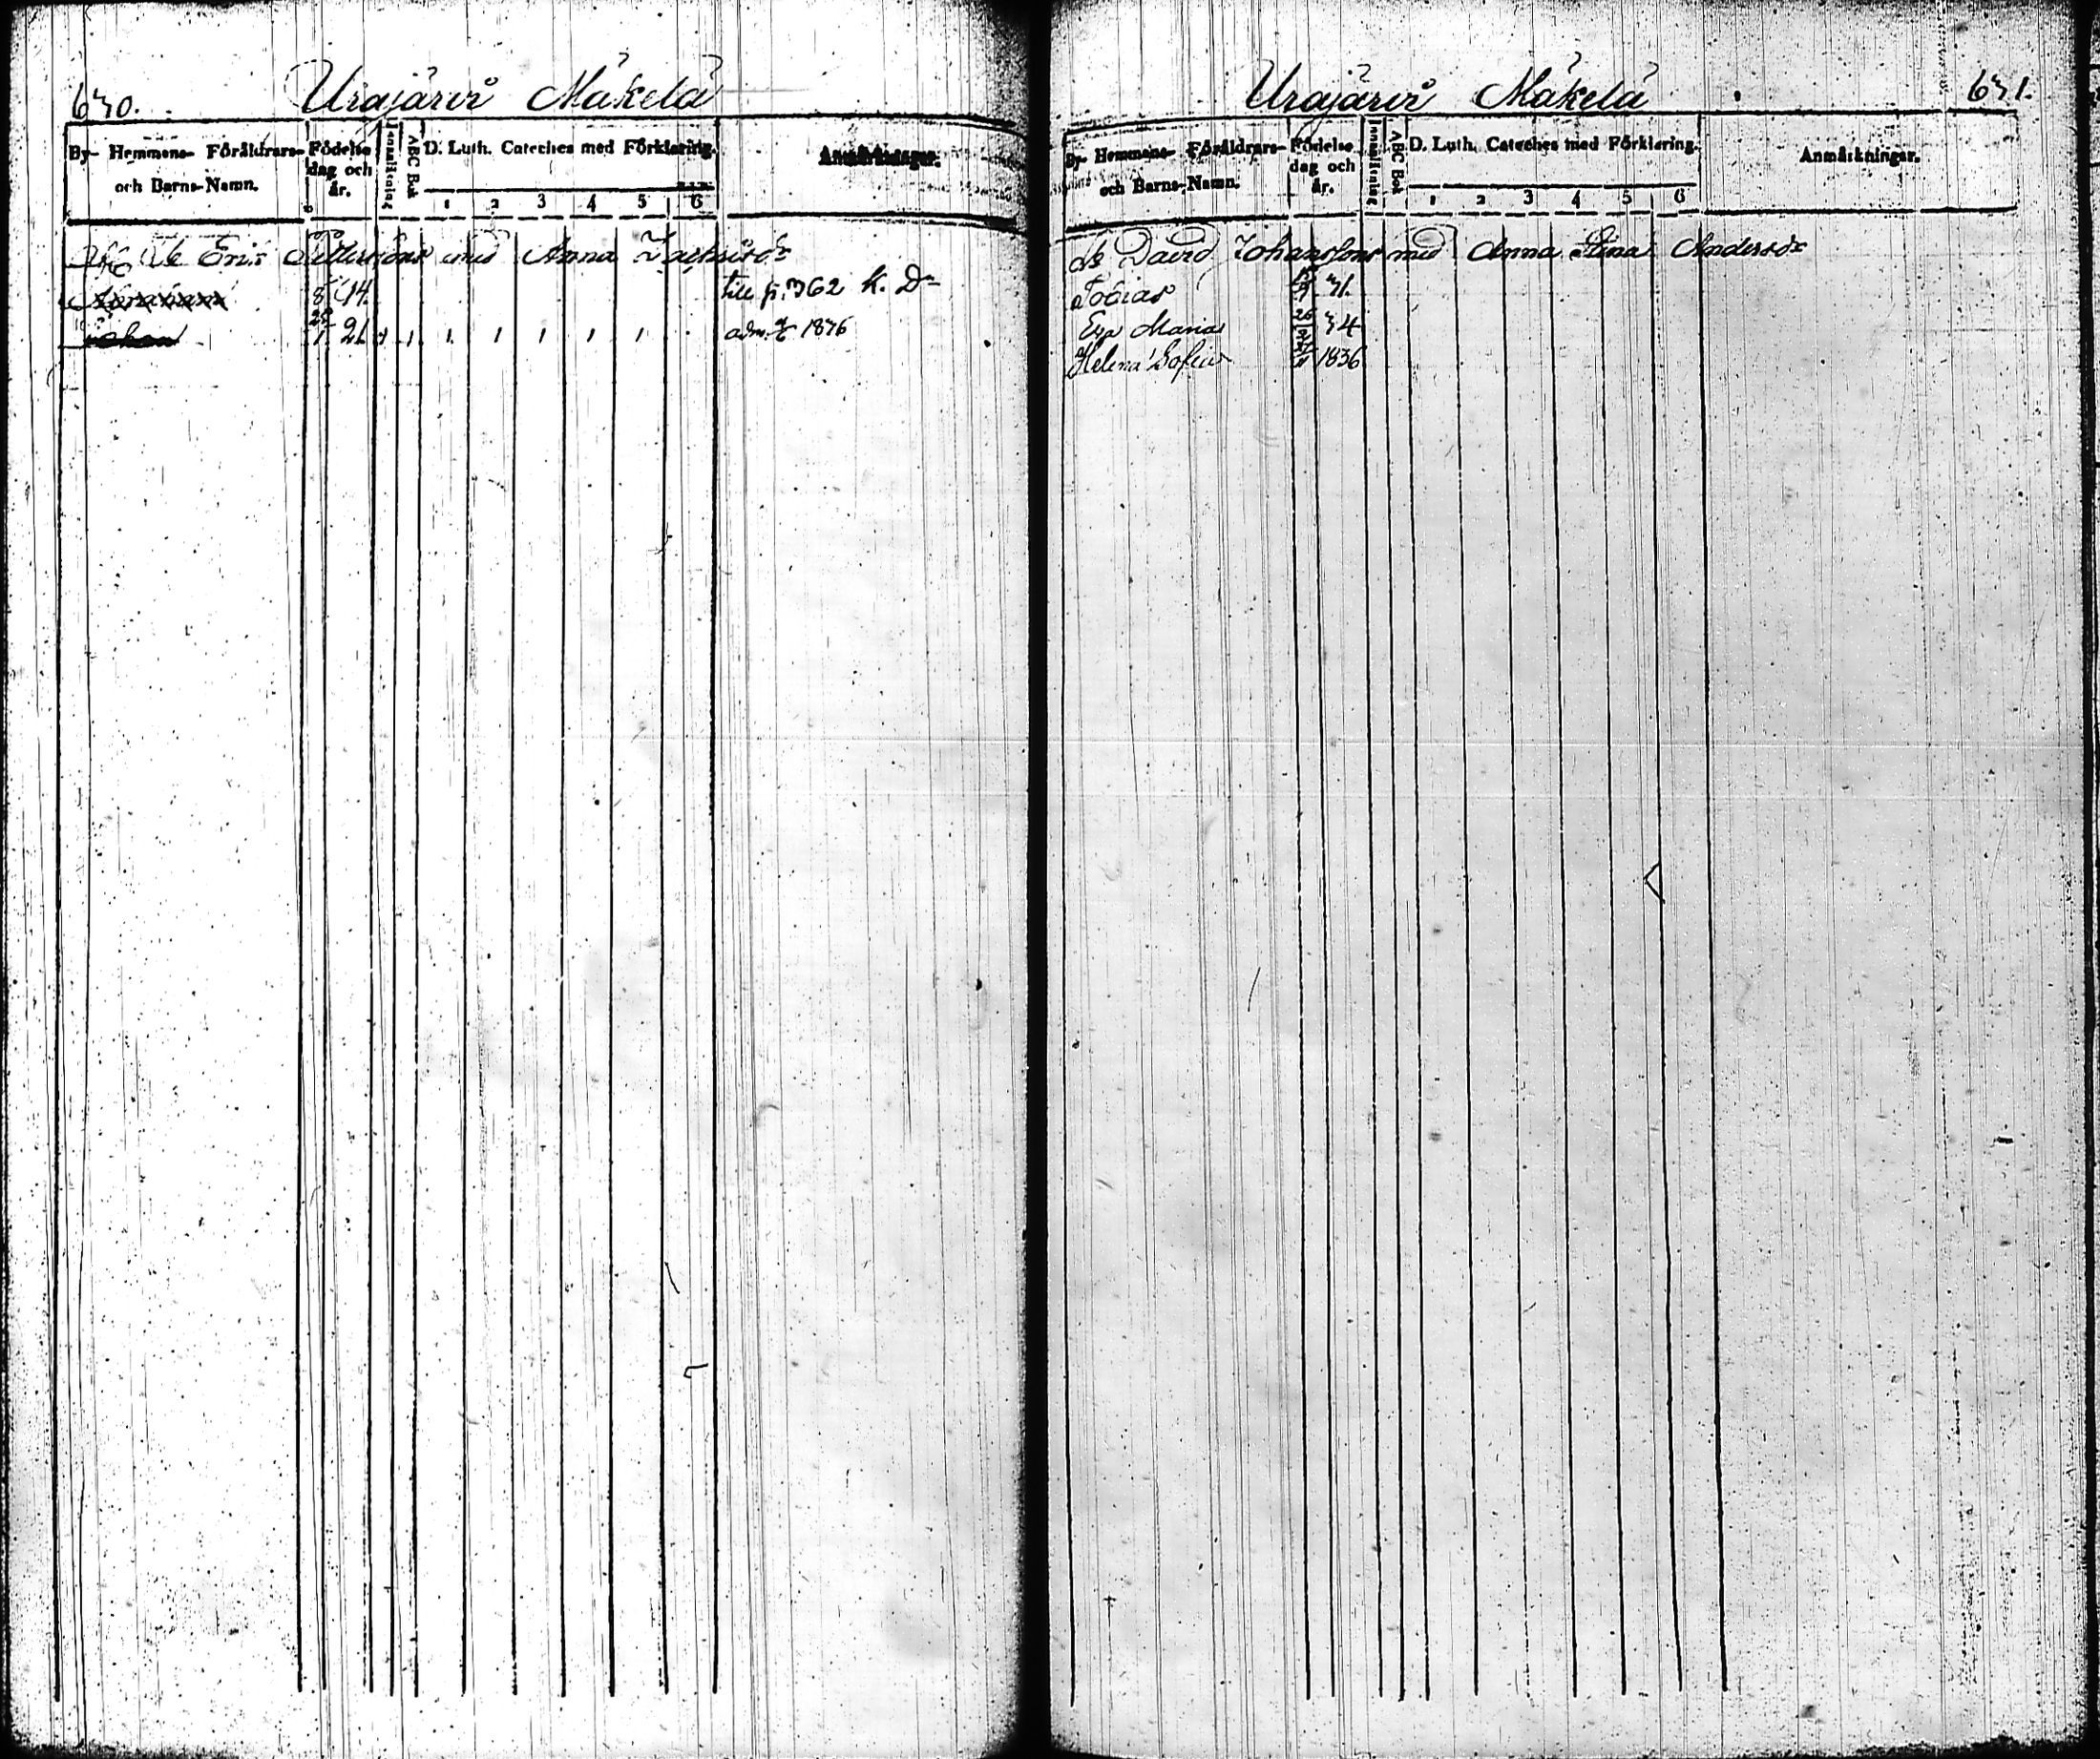 630.
Urajärvi Mäkelä
By- Hemmans- Föräldrars- och Barns-Namn.
Födelse dag och år.
Innanläsning
ABC Bok
D. Luth. Cateches med Förklaring.
1 2 3 4 5 6
Anmärkningar.
Eric med Anna
8 14. till p. 362 k. D
Johan 21 1 1 1 1 1 1 adm. 1836
Urajärvi Mäkelä
631.
By- Hemmans- Föräldrars- och Barns-Namn.
Födelse dag och år.
Innanläsning
ABC Bok
D. Luth. Cateches med Förklaring.
1 2 3 4 5 6
Anmärkningar.
David Johansson med Anna Stina Andersdr
Tobias 31.
Eva Maria 26 34
Helena Sofia 1836